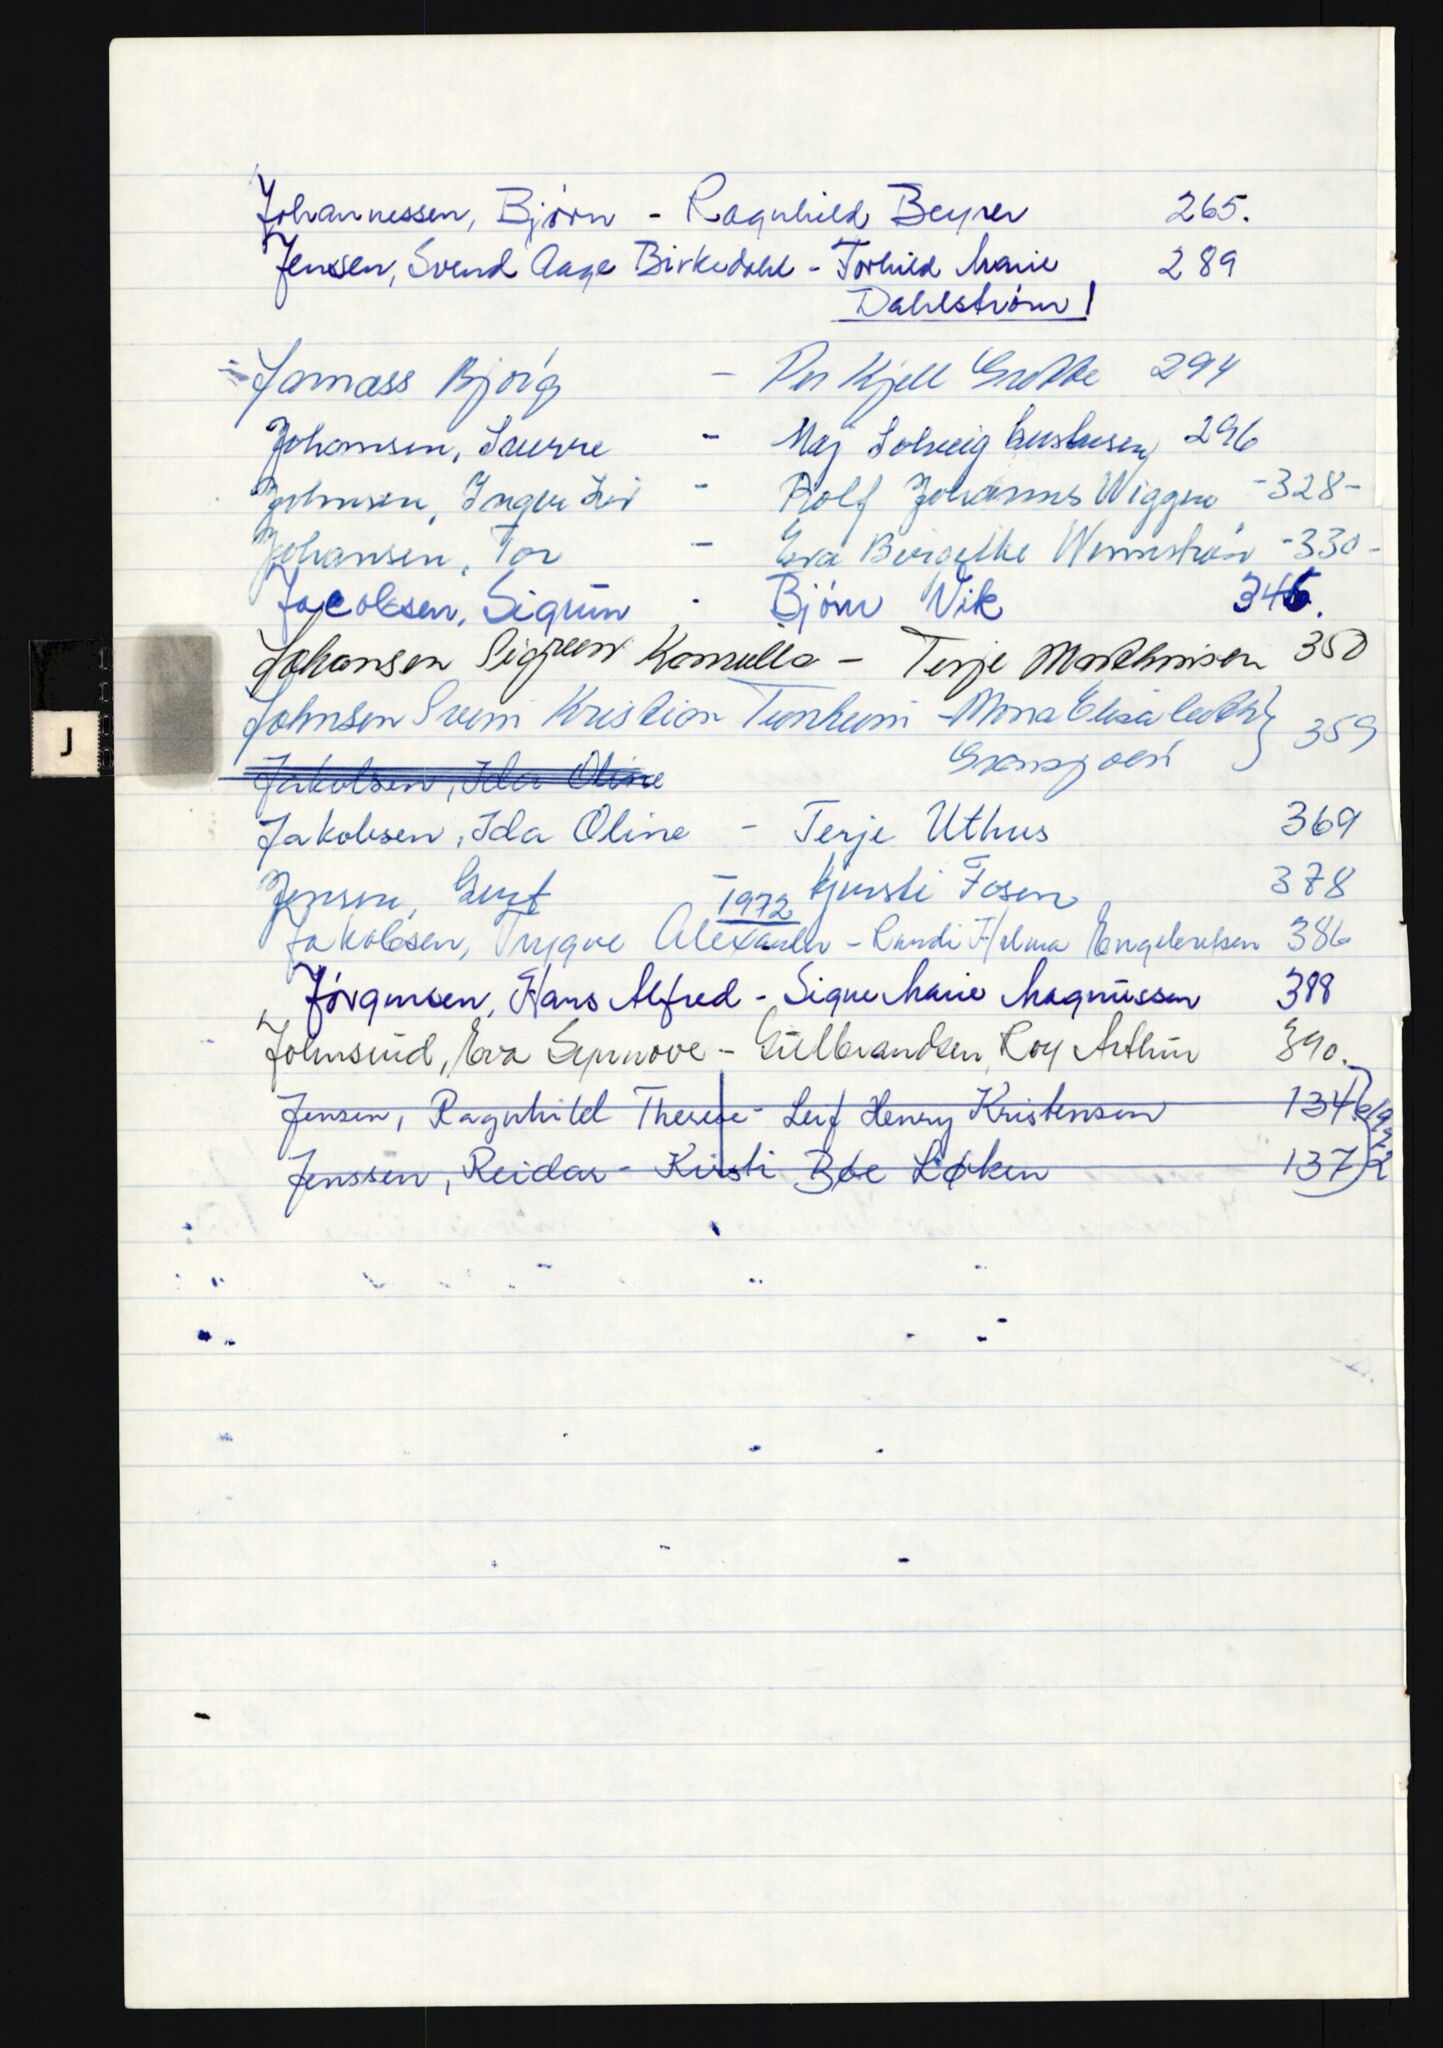 Johannessen, Bjørn - Ragnhild Beyrer 265.
Jenssen, Svend Aage Birkedahl - Torhild Marie 289
Dahlstrøm!
Jamass Bjørg - Per Kjell Grøtte 294
Johansen, Sverre - Maj Solveig 296
Johnsen, Inger Liv - Rolf Johannes Wiggen - 328 -
Johansen, Tor - Eva Birgitte Wennstrøm - 330 -
Jacobsen, Sigrun - Bjørn Vik 346.
Johansen Sigrunn Kamilla - Terje Marthinsen 350
Johnsen Svein Kristian - Mona Elisabeth} 359
Jakobsen, Ida Oline
J
Jakobsen, Ida Oline - Terje Uthus 369
Jensen, Gert - Kjersti Fosen 378
1972
Jakobsen, Trygve Alexander - Randi Helma Engebretsen 386
Jørgensen, Hans Alfred - Signe Marie Magnussen 388
Johnsrud, Eva Synnøve - Gulbrandsen, Roy Arthur 390.
Jensen, Ragnhild Therese - Leif Henry Kristensen 134
Jenssen, Reidar - Kirsti Bøe Løken 137